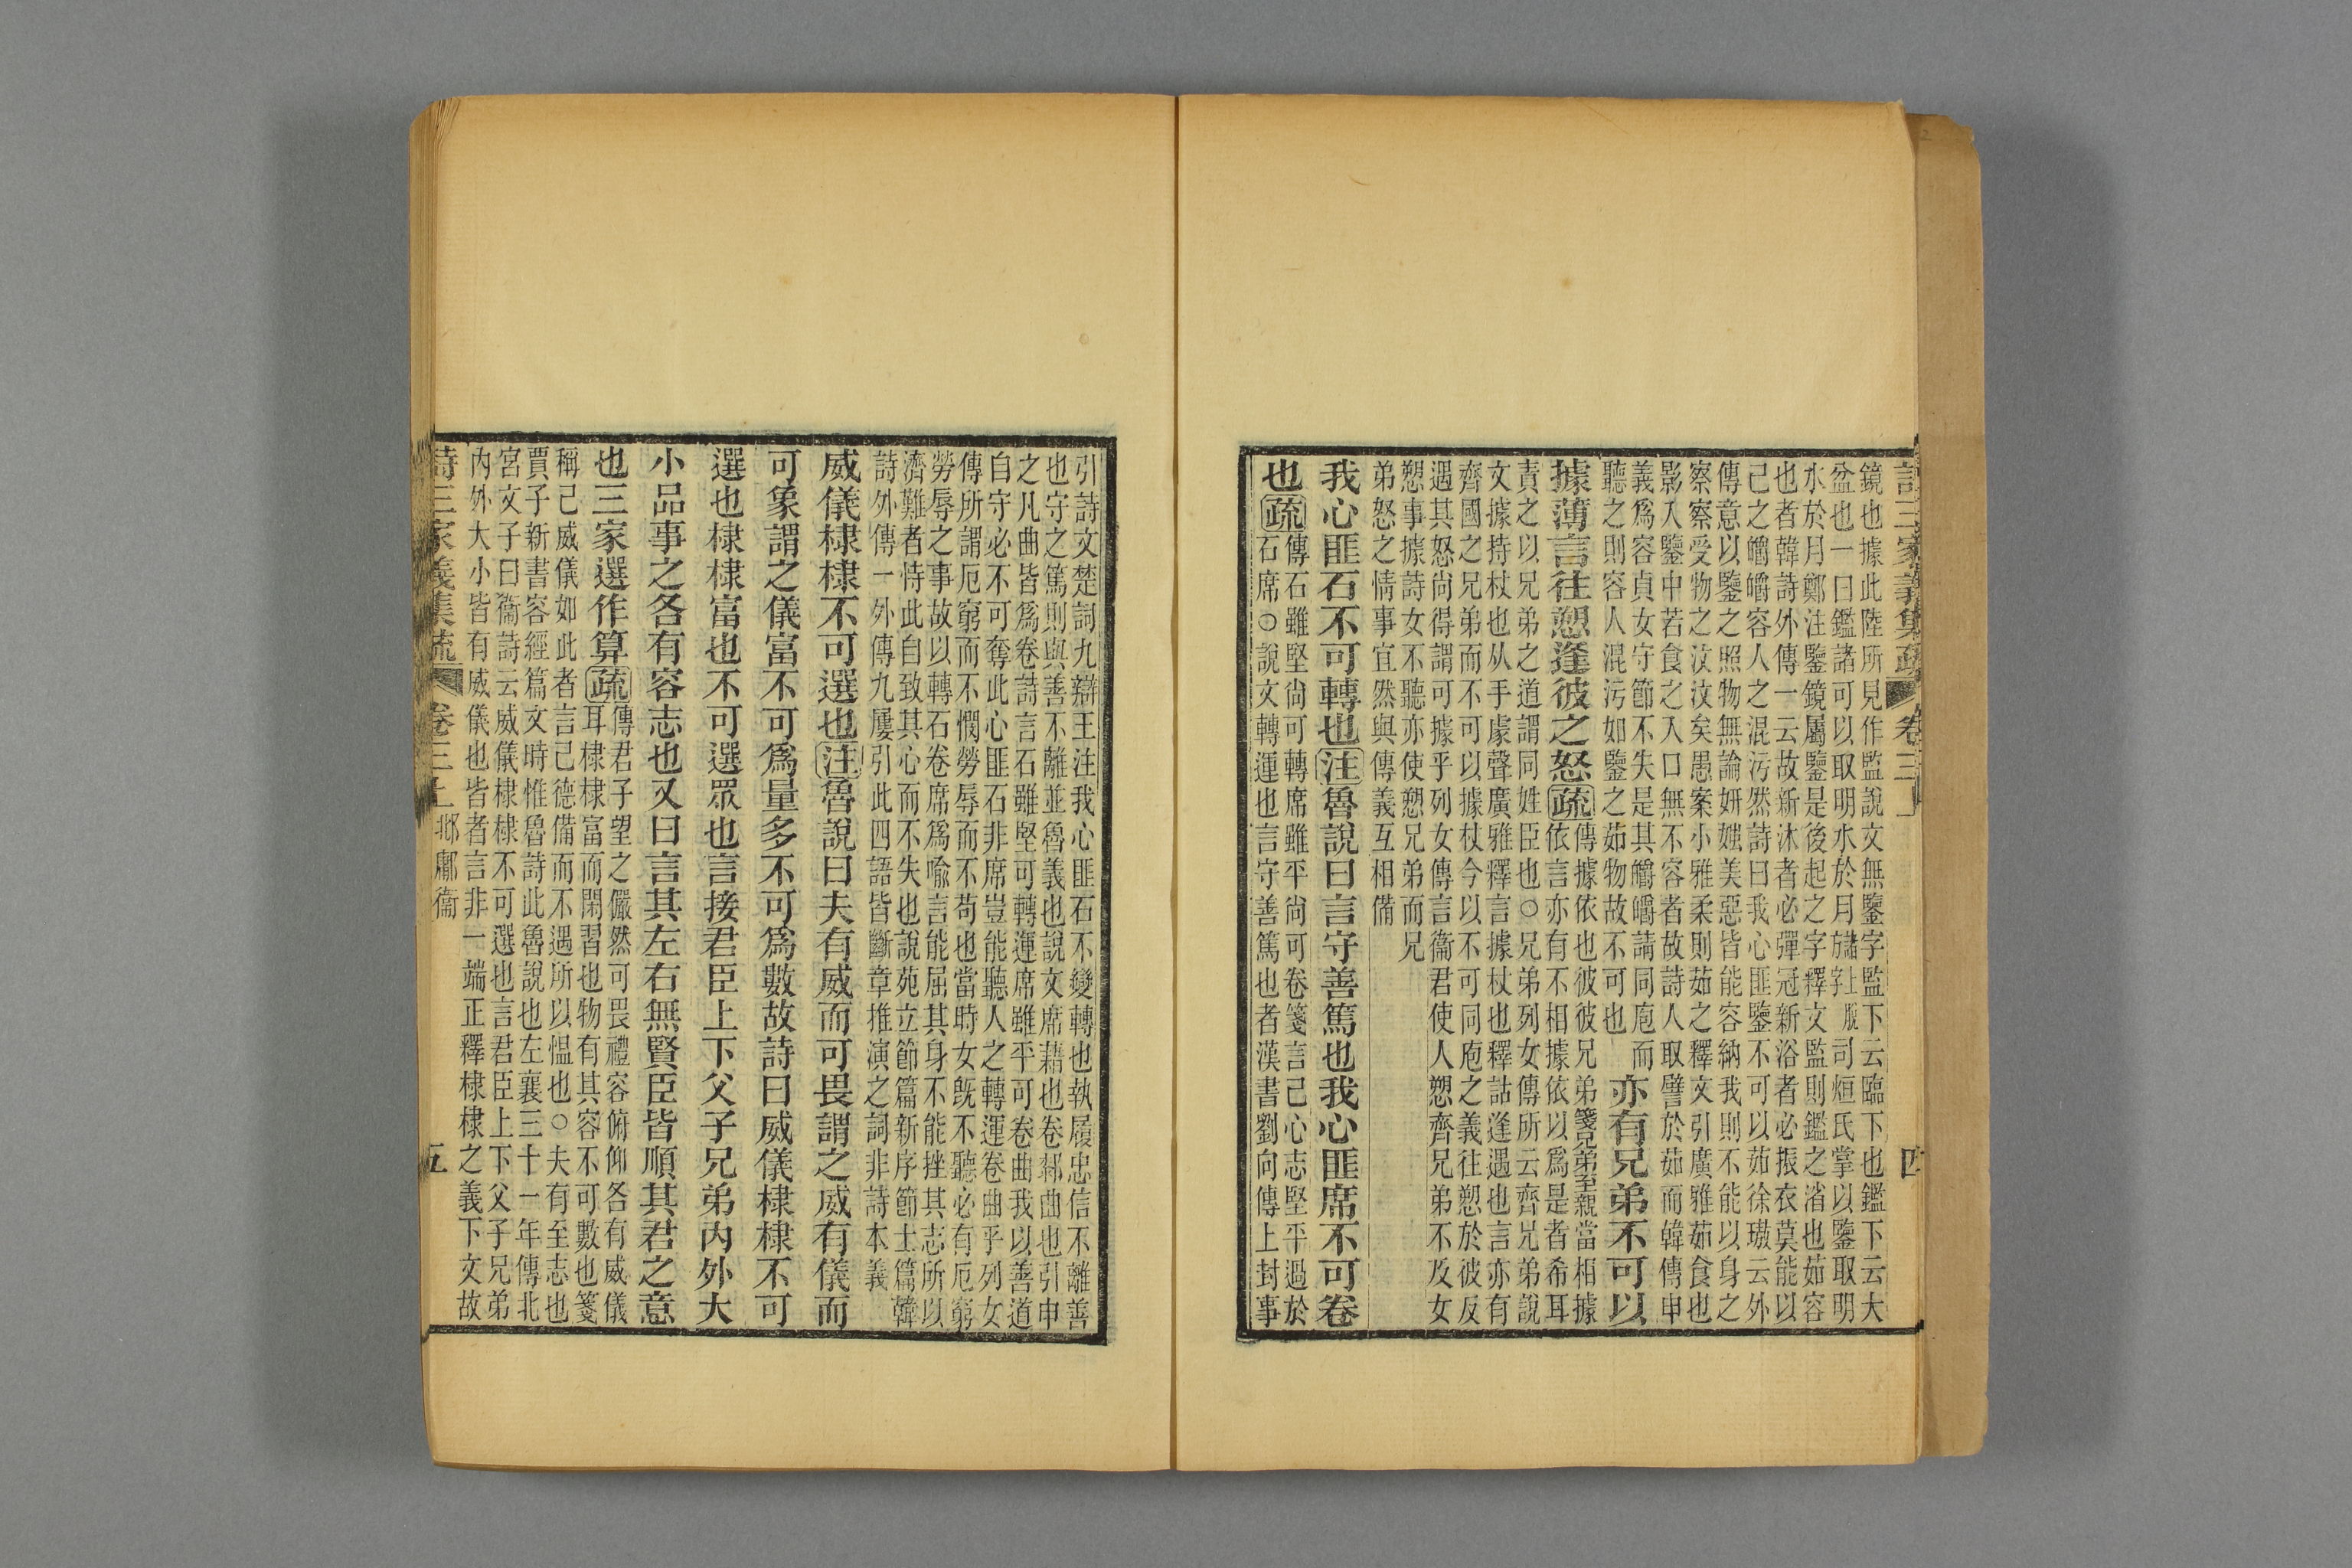 詩三家義集疏 卷三上 四
鏡也據此陸所見作監說文無鑒字監下云臨下也鑑下云大
盆也一曰鑑諸可以取明水於月䥜字上脫司烜氏掌以鑒取明
水於月鄭注鑒鏡屬鑒是後起之字釋文監則鑑之渻也茹容
也者韓詩外傳一云故新沐者必彈冠新浴者必振衣莫能以
己之皭皭容人之混污然詩曰我心匪鑒不可以茹徐璈云外
傳意以鑒之照物無論妍媸美惡皆能容納我則不能以身之
察察受物之汶汶矣愚案小雅柔則茹之釋文引廣雅茹食也
影入鑒中若食之入口無不容者故詩人取譬於茹而韓傳申
義爲容貞女守節不失是其皭皭請同庖而
聽之則容人混污如鑒之茹物故不可也
亦有兄弟不可以
據薄言往愬逢彼之怒疏
傳據依也彼彼兄弟箋兄弟至親當相據
依言亦有不相據依以爲是者希耳
責之以兄弟之道謂同姓臣也○兄弟列女傳所云齊兄弟說
文據持杖也从手豦聲廣雅釋言據杖也釋詁逢遇也言亦有
齊國之兄弟而不可以據杖今以不可同庖之義往愬於彼反
遇其怒尙得謂可據乎列女傳言衞君使人愬齊兄弟不及女
愬事據詩女不聽亦使愬兄弟而兄
弟怒之情事宜然與傳義互相備
我心匪石不可轉也注魯說曰言守善篤也我心匪席不可卷
也疏
傳石雖堅尙可轉席雖平尙可卷箋言己心志堅平過於
石席○說文轉運也言守善篤也者漢書劉向傳上封事
引詩文楚詞九辯王注我心匪石不變轉也執履忠信不離善
也守之篤則與善不離並魯義也說文席藉也卷郄曲也引申
之凡曲皆爲卷詩言石雖堅可轉運席雖平可卷曲我以善道
自守必不可奪此心匪石非席豈能聽人之轉運卷曲乎列女
傳所謂厄窮而不憫勞辱而不苟也當時女旣不聽必有厄窮
勞辱之事故以轉石卷席爲喩言能屈其身不能挫其志所以
濟難者恃此自致其心而不失也說苑立節篇新序節士篇韓
詩外傳一外傳九屢引此四語皆斷章推演之詞非詩本義
威儀棣棣不可選也注魯說曰夫有威而可畏謂之威有儀而
可象謂之儀富不可爲量多不可爲數故詩曰威儀棣棣不可
選也棣棣富也不可選眾也言接君臣上下父子兄弟內外大
小品事之各有容志也又曰言其左右無賢臣皆順其君之意
也三家選作算疏
傳君子望之儼然可畏禮容俯仰各有威儀
耳棣棣富而閑習也物有其容不可數也箋
稱己威儀如此者言己德備而不遇所以慍也○夫有至志也
賈子新書容經篇文時惟魯詩此魯說也左襄三十一年傳北
宮文子曰衞詩云威儀棣棣不可選也言君臣上下父子兄弟
內外大小皆有威儀也皆者言非一端正釋棣棣之義下文故
詩三家義集疏 卷三上 邶鄘衞 五